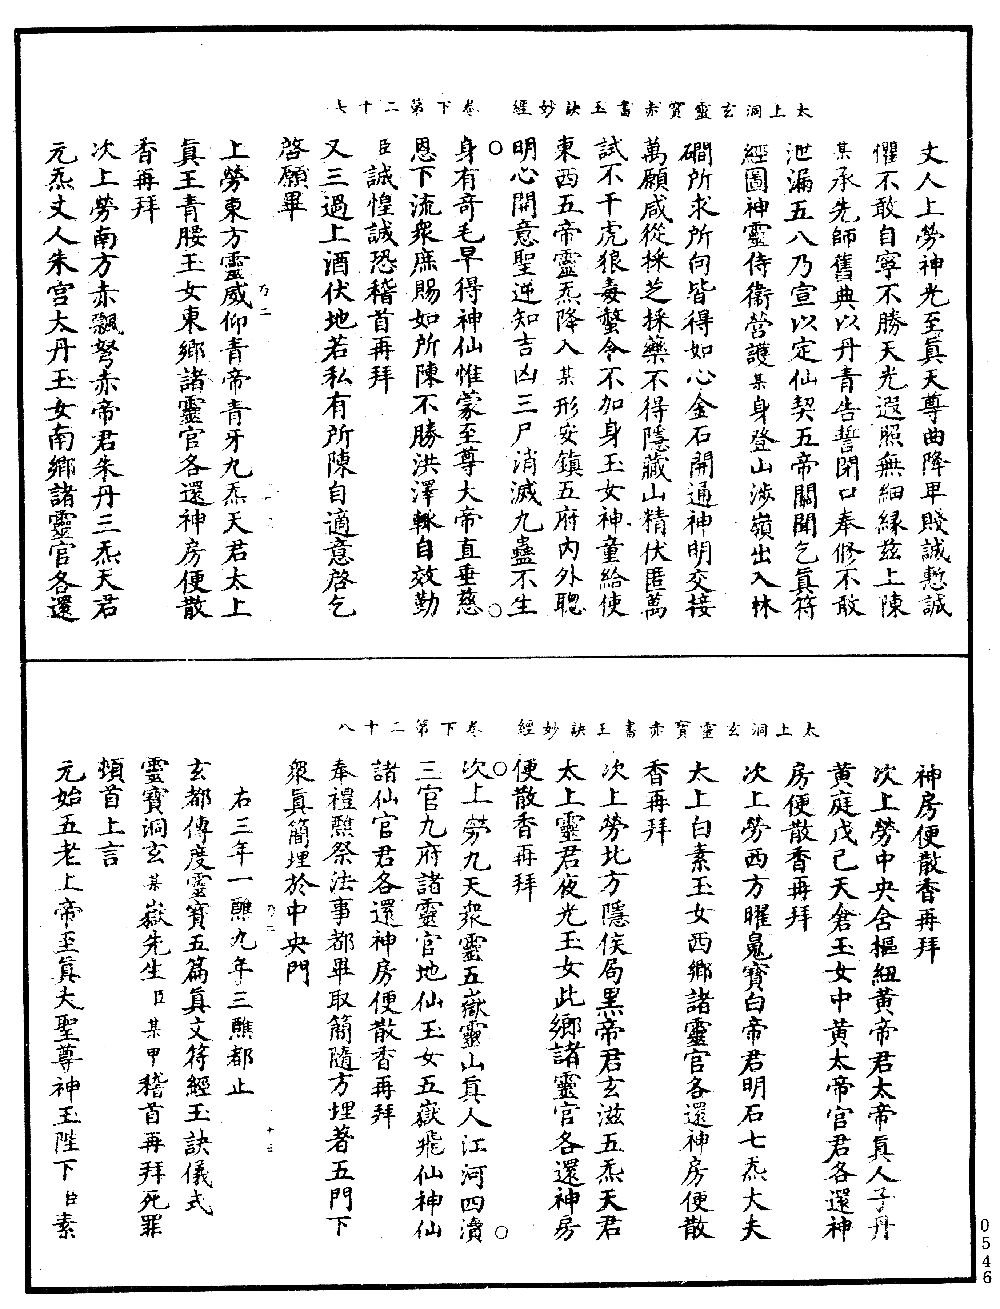 太上洞玄靈寶赤書玉訣妙經　卷下第二十七
丈人上勞神光至眞天尊曲降卑賤誠懃誠
懼不敢自寧不勝天光遐照無細緣兹上陳
某承先師舊典以丹青告誓閉口奉修不敢
泄漏五八乃宣以定仙契五帝關聞乞眞符
經圖神靈侍衞營護某身登山涉嶺出入林
磵所求所向皆得如心金石開通神明交接
萬願咸從採芝採藥不得隱藏山精伏匿萬
試不干虎狼毒螫令不加身玉女神童給使
東西五帝靈炁降入某形安鎮五府內外聰
明心開意聖逆知吉凶三尸消滅九蟲不生
身有奇毛早得神仙惟蒙至尊大帝直垂慈
恩下流衆庶賜如所陳不勝洪澤輙自效勤
臣誠惶誠恐稽首再拜
又三過上酒伏地若私有所陳自適意啓乞
啓願畢
乃二
上勞東方靈威仰青帝青牙九炁天君太上
眞王青腰玉女東鄉諸靈官各還神房便散
香再拜
次上勞南方赤飄弩赤帝君朱丹三炁天君
元炁丈人朱宮太丹玉女南鄉諸靈官各還
太上洞玄靈寶赤書玉訣妙經　卷下第二十八
神房便散香再拜
次上勞中央含樞紐黃帝君太帝眞人子丹
黃庭戊己天倉玉女中黃太帝官君各還神
房便散香再拜
次上勞西方曜鬼寶白帝君明石七炁大夫
太上白素玉女西鄉諸靈官各還神房便散
香再拜
次上勞北方隱侯局黑帝君玄滋五炁天君
太上靈君夜光玉女北鄉諸靈官各還神房
便散香再拜
次上勞九天衆靈五嶽靈山眞人江河四瀆
三官九府諸靈官地仙玉女五嶽飛仙神仙
諸仙官君各還神房便散香再拜
奉禮醮祭法事都畢取簡隨方埋著五門下
衆眞簡埋於中央門
右三年一醮九年三醮都止
玄都傳度靈寶五篇眞文符經玉訣儀式
靈寶洞玄某嶽先生臣某甲稽首再拜死罪
頓首上言
元始五老上帝至眞大聖尊神玉陛下臣素
0546